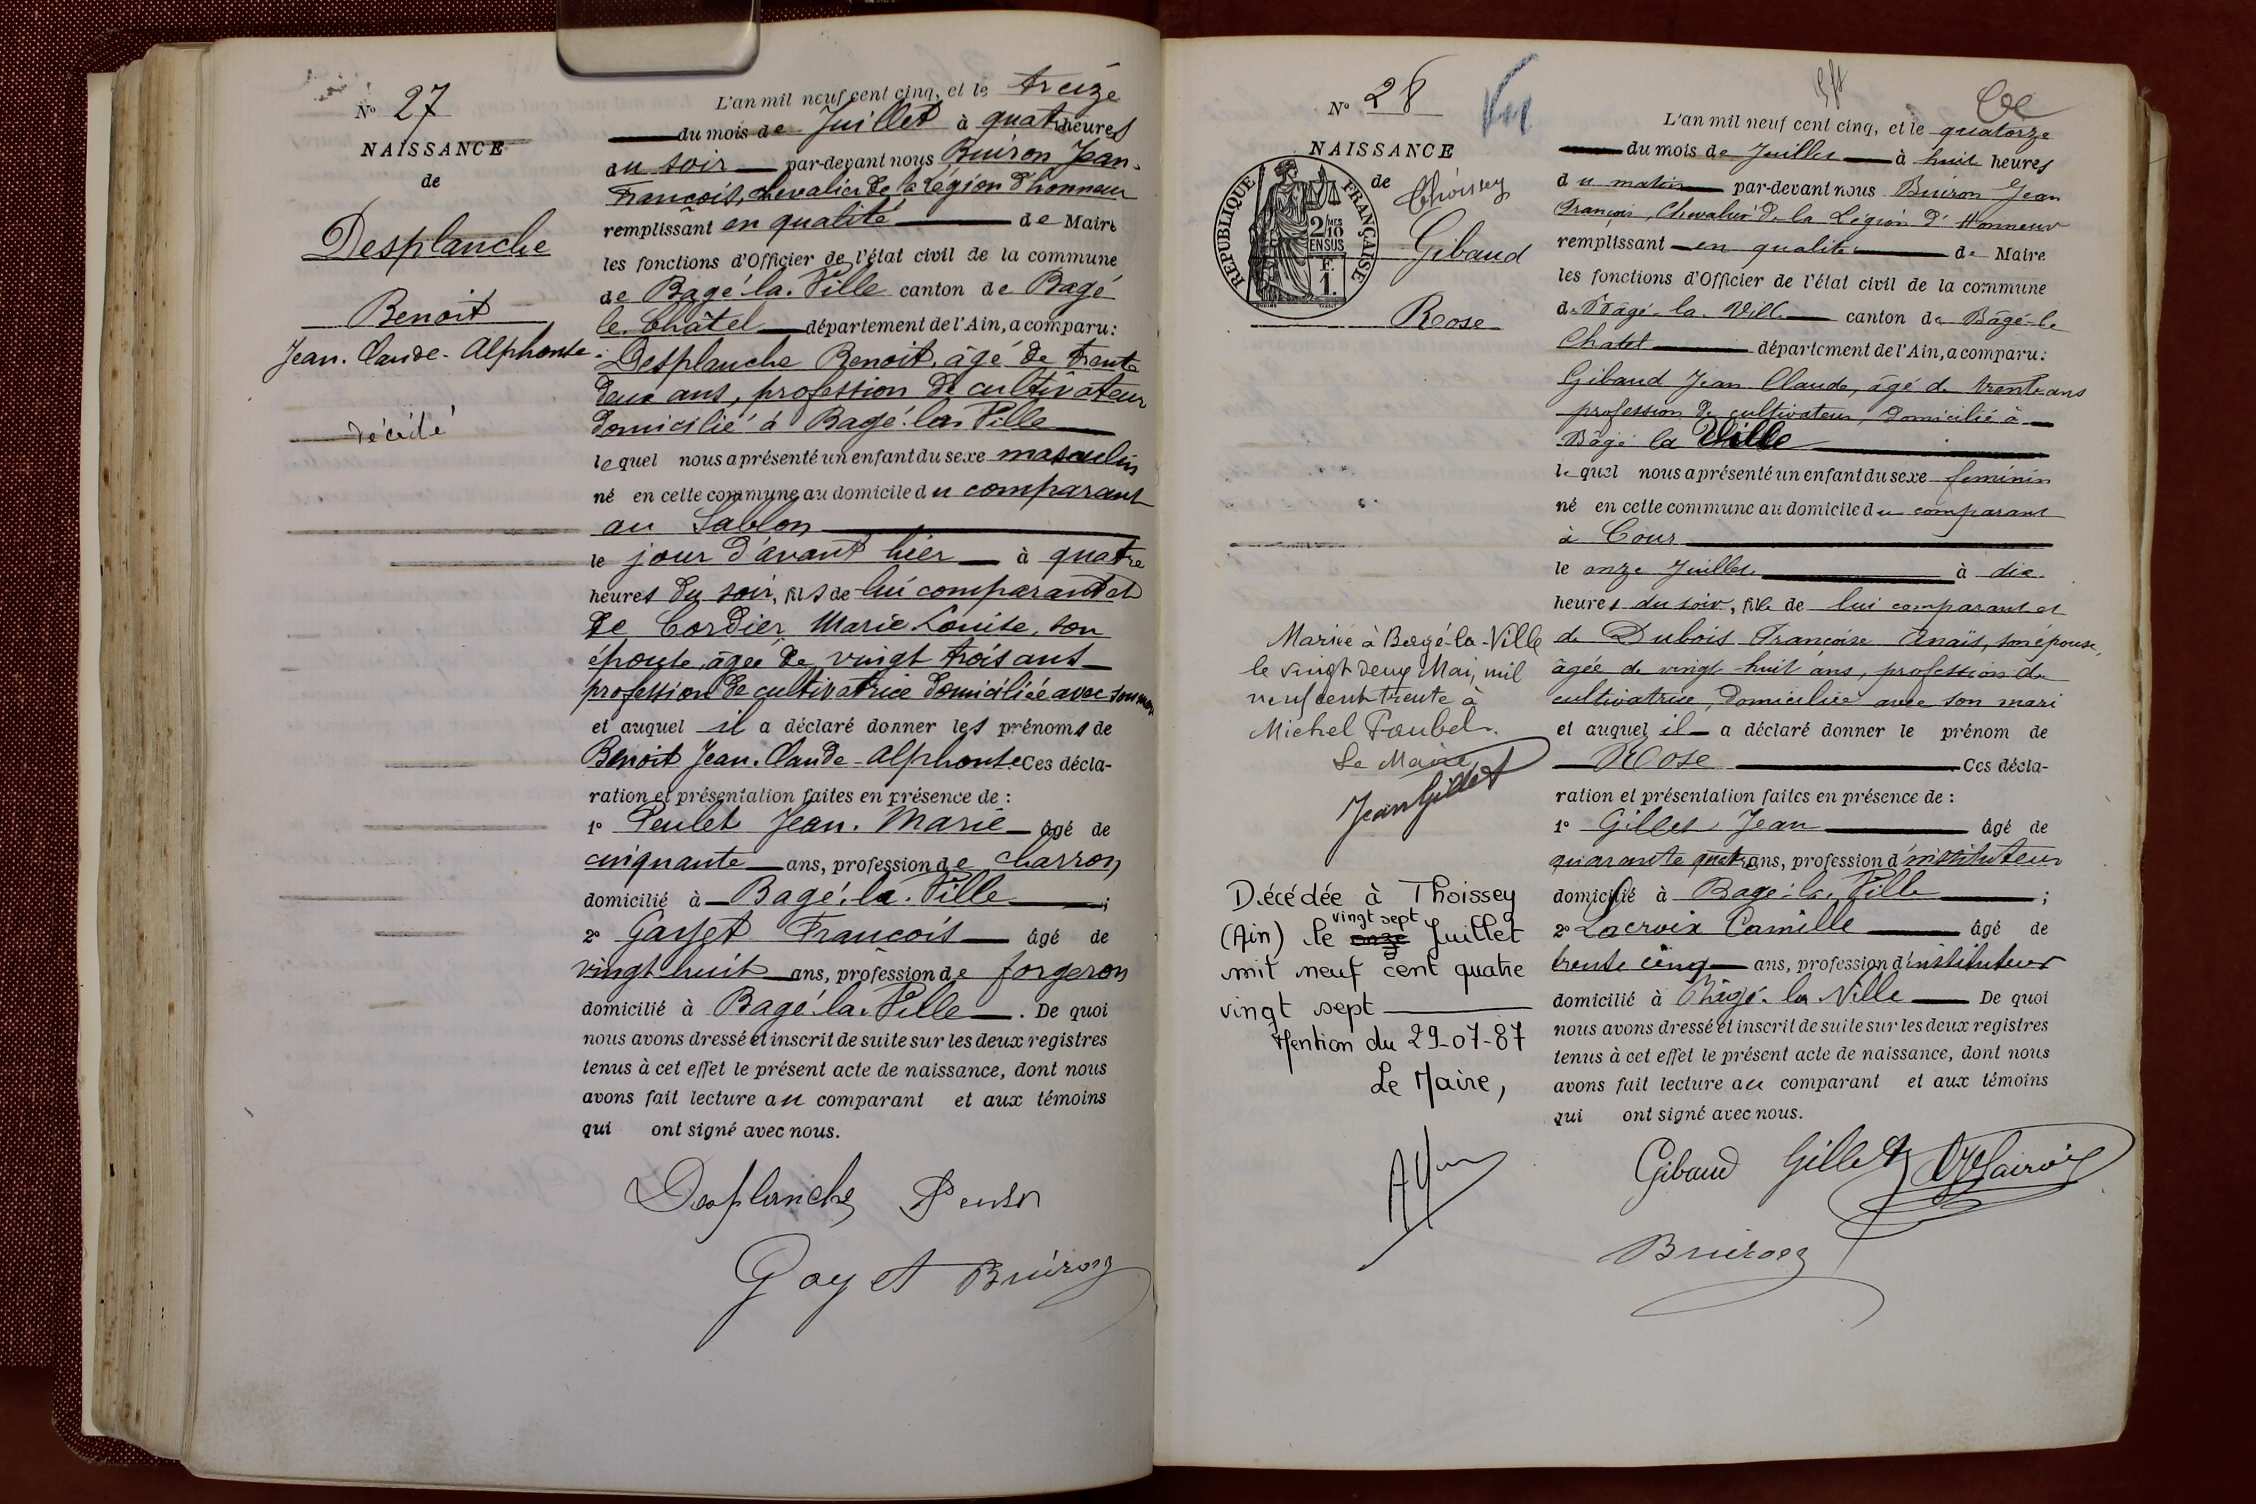 N° 27
NAISSANCE
de
Desplanche
Benoit
Jean. Claude. Alphonse.
décédé
L'an mil neuf cent cinq, et le treize
du mois de Juillet à quatre heures
du soir par-devant nous Buiron Jean-
François, chevalier de la Légion d'honneur
remplissant en qualité de Maire
les fonctions d'Officier de l'état civil de la commune
de Bagé-la-Ville canton de Bagé
le Châtel département de l'Ain, a comparu:
Desplanche Benoit, âgé de trente
deux ans, profession de cultivateur
domicilié à Bagé-la-Ville
lequel nous a présenté un enfant du sexe masculin
né en cette commune au domicile du comparant
au Sablon
le jour d'avant hier à quatre
heures du soir, fils de lui comparant et
de Cordier Marie Louise, son
épouse, âgée de vingt trois ans
profession de cultivatrice domiciliée avec son mari
et auquel il a déclaré donner les prénoms de
Benoit Jean. Claude-Alphonse. Ces décla-
ration et présentation faites en présence de :
1° Peulet Jean. Marie âgé de
cinquante ans, profession de charron
domicilié à Bagé-la-Ville ;
2° Goyet François âgé de
vingt huit ans, profession de forgeron
domicilié à Bagé-la-Ville . De quoi
nous avons dressé et inscrit de suite sur les deux registres
tenus à cet effet le présent acte de naissance, dont nous
avons fait lecture au comparant et aux témoins
qui ont signé avec nous.
Desplanche Peulet
Goyet Buiron
N° 28
NAISSANCE
de
Thoissey
RÉPUBLIQUE FRANÇAISE
2/10
EN SUS
1
Gibaud
Rose
Mariée à Bagé-la-Ville
le vingt deux Mai, mil
neuf cent trente à
Michel Faubel.
Le Maire,
Jean Gillet
Décédée à Thoissey
vingt sept
(Ain) le onze Juillet
mil neuf cent quatre
vingt sept
Mention du 29-07-87
Le Maire,
L'an mil neuf cent cinq, et le quatorze
du mois de Juillet à huit heures
du matin par-devant nous Buiron Jean
François, Chevalier de la Légion d'Honneur
remplissant en qualité de Maire
les fonctions d'Officier de l'état civil de la commune
de Bâgé-la-Ville canton de Bâgé-le
Chatel département de l'Ain, a comparu:
Gibaud Jean Claude, âgé de trente ans
profession de cultivateur, domicilié à
Bâgé la Ville
lequel nous a présenté un enfant du sexe féminin
né en cette commune au domicile du comparant
à Cour
le onze Juillet à dix
heures du soir, fille de lui comparant et
de Dubois Françoise Anaïs, son épouse,
âgée de vingt-huit ans, profession de
cultivatrice, domiciliée avec son mari
et auquel il a déclaré donner le prénom de
Rose . Ces décla-
ration et présentation faites en présence de :
1° Gillet Jean âgé de
quarante quatre ans, profession d'instituteur
domicilié à Bagé-la-Ville ;
2° Lacroix Camille âgé de
trente cinq ans, profession d'instituteur
domicilié à Bâgé-la-Ville De quoi
nous avons dressé et inscrit de suite sur les deux registres
tenus à cet effet le présent acte de naissance, dont nous
avons fait lecture au comparant et aux témoins
qui ont signé avec nous.
Gibaud Gillet Lacroix
Buiron